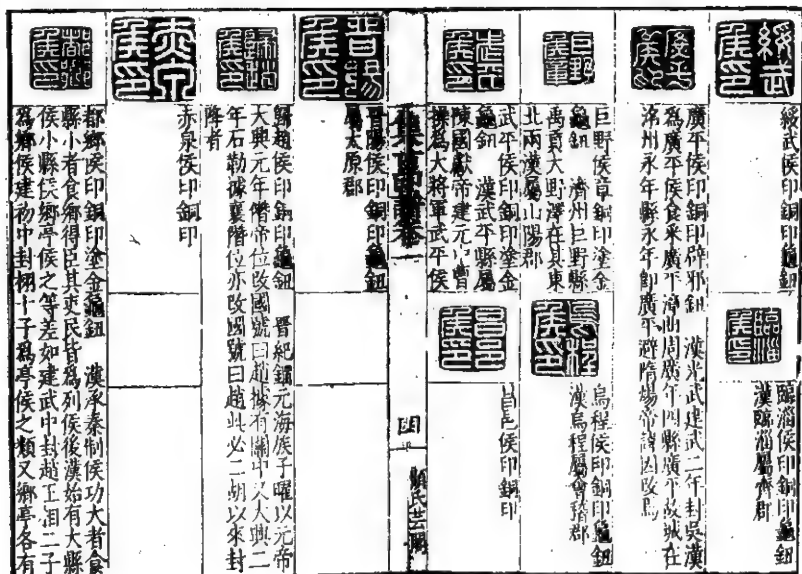 綏武侯印
綏武侯印銅印龜鈕
臨淄侯印
臨淄侯印銅印龜鈕
漢臨淄屬齊郡
廣平侯印銅印辟邪鈕　漢光武建武二年封吳漢
為廣平侯食采廣平斥漳曲周廣年四縣廣平故城在
洺州永年縣永年即廣平避隋煬帝諱因改焉
巨野侯章
巨野侯章銅印塗金
龜鈕　濟州巨野縣
禹貢大野澤在其東
北兩漢屬山陽郡
烏程侯印
烏程侯印銅印龜鈕
漢烏程屬會稽郡
武平侯印
武平侯印銅印塗金
龜鈕　漢武平縣屬
陳國獻帝建元中曹
操為大將軍武平侯
昌邑侯印
昌邑侯印銅印
集古印譜卷一
四
顧氏芸閣
晉陽侯印
晉陽侯印銅印龜鈕
屬太原郡
歸趙侯印
歸趙侯印銅印龜鈕　晉紀劉元海族子曜以元帝
大興元年僭帝位改國號曰趙據有關中又大興二
年石勒據襄僭位亦改國號曰趙此必二胡以來封
降者
赤泉侯印
赤泉侯印銅印
都鄉侯印
都鄉侯印銅印塗金龜鈕　漢承秦制侯功大者食
縣小者食鄉得臣其吏民皆為列侯後漢始有大縣
侯小縣侯鄉亭侯之等差如建武中封趙王栩二子
為鄉侯建初中封栩十子為亭侯之類又鄉亭各有